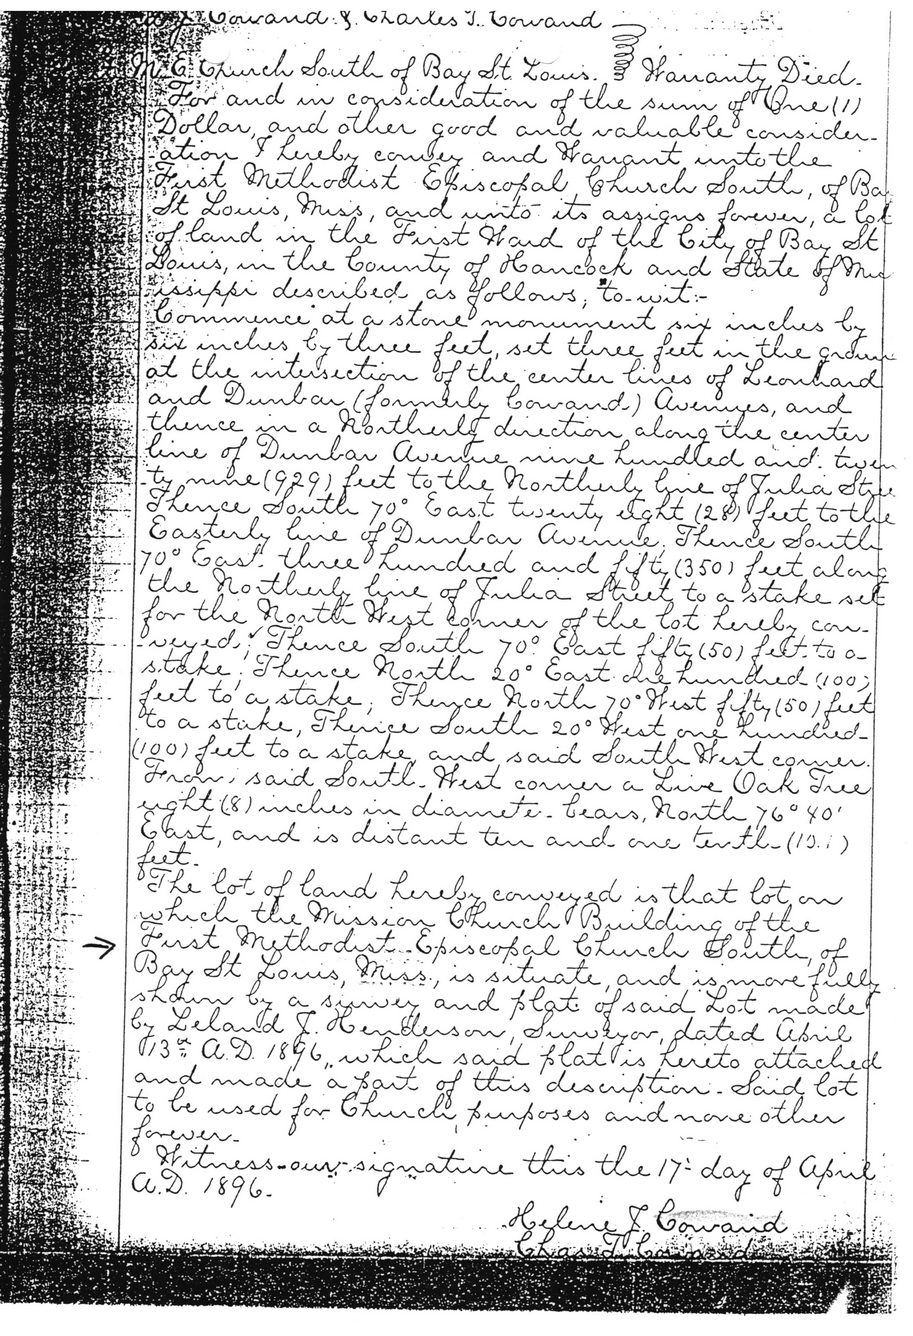 J. Cowand & Charles T. Cowand
M. E. Church South of Bay St Louis. Warranty Died.
For and in consideration of the sum of One (1)
Dollar, and other good and valuable consider-
-ation I hereby convey and Warrant unto the
First Methodist Episcopal Church South, of Ba
St Louis, Miss, and unto its assigns forever, a lot
of land in the First Ward of the City of Bay St
Louis, in the County of Hancock and State of Mis
issippi described as follows, to-wit:-
Commence at a stone monument six inches by
six inches by three feet, set three feet in the groun
at the intersection of the center lines of Leonhard
and Dunbar (formerly Cowand) Avenues, and
thence in a Northerly direction along the center
line of Dunbar Avenue nine hundred and twen
-ty nine (929) feet to the Northerly line of Julia Stree
Thence South 70° East twenty eight (28) feet to the
Easterly line of Dunbar Avenue, Thence South
70° East three hundred and fifty (350) feet along
the Northerly line of Julia Street to a stake set
for the North West corner of the lot hereby con-
-veyed; Thence South 70° East fifty (50) feet to a
stake; Thence North 20° East one hundred (100)
feet to a stake; Thence North 70° West fifty (50) feet
to a stake, Thence South 20° West one hundred
(100) feet to a stake and said South West corner.
From said South West corner a Live Oak Tree
eight (8) inches in diamete bears, North 76° 40'
East, and is distant ten and one tenth (10.1)
feet.
The lot of land hereby conveyed is that lot on
which the Mission Church Building of the
First Methodist Episcopal Church South, of
Bay St Louis, Miss., is situate, and is more fully
shown by a survey and plat of said Lot made
by Leland J. Henderson, Surveyor, dated April
13th A.D. 1896, which said plat is hereto attached
and made a part of this description. Said lot
to be used for Church purposes and none other
forever.
Witness our signature this the 17 day of April
A.D. 1896.
Helene J. Cowand
Chas T. Cowand